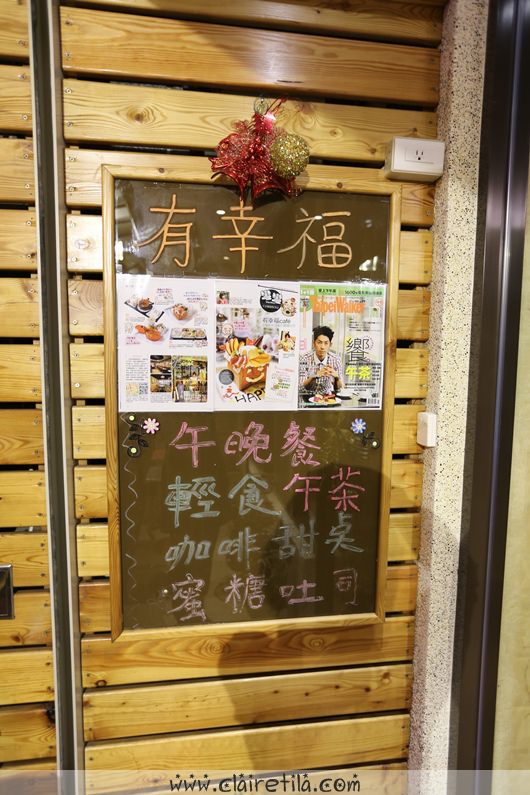 有幸福
TaipeiWalker
有幸福cafe
饗
午茶
HAP
午晚餐
輕食午茶
咖啡甜點
蜜糖吐司
www.clairetila.com